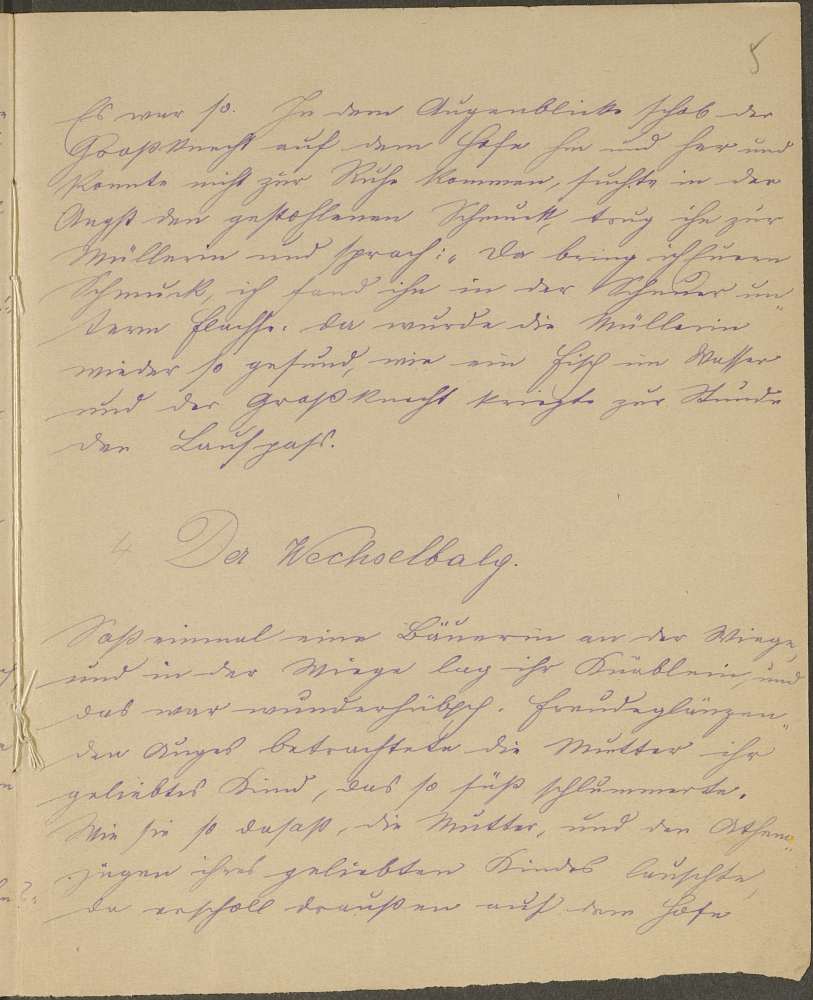 5
Es war so. In dem Augenblicke schob der
Großknecht auf dem Hofe hin und her und
konnte nicht zur Ruhe kommen, suchte in der
Angst den gestohlenen Schmuck, trug ihn zur
Müllerin und sprach: „Da bring ich Euern
Schmuck, ich fand ihn in der Scheuer un-
term Flachse. Da wurde die Müllerin
wieder so gesund, wie ein Fisch im Wasser
und der Großknecht kriegte zur Stunde
den Laufpass.
4 Der Wechselbalg.
Saß einmal eine Bäuerin an der Wiege,
und in der Wiege lag ihr Knäblein, und
das war wunderhübsch. Freudeglänzen-
den Auges betrachtete die Mutter ihr
geliebtes Kind, das so süß schlummerte.
Wie sie so dasaß, die Mutter, und den Athem-
zügen ihres geliebten Kindes lauschte,
da erscholl draußen auf dem Hofe